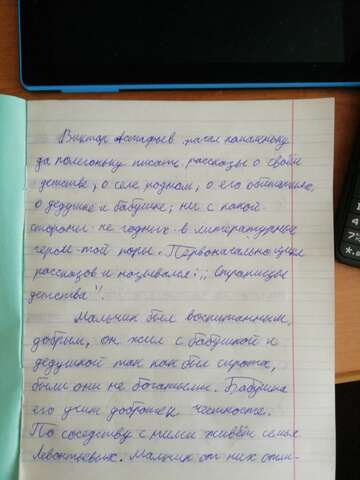 Виктор Астафьев начал помаленьку
да полегоньку писать рассказы о своём
детстве, о селе родном, о его обитателях,
о дедушке и бабушке, ни с какой
стороны не годных в литературные
герои той поры. Первоначально цикл
рассказов и назывался: ,,Страницы
детства".
Мальчик был воспитанным,
добрым, он жил с бабушкой и
дедушкой так как был сирота,
были они не богатыми. Бабушка
его учит доброте и честности.
По соседству с ними живёт семья
Левонтьевых. Мальчик от них отли-